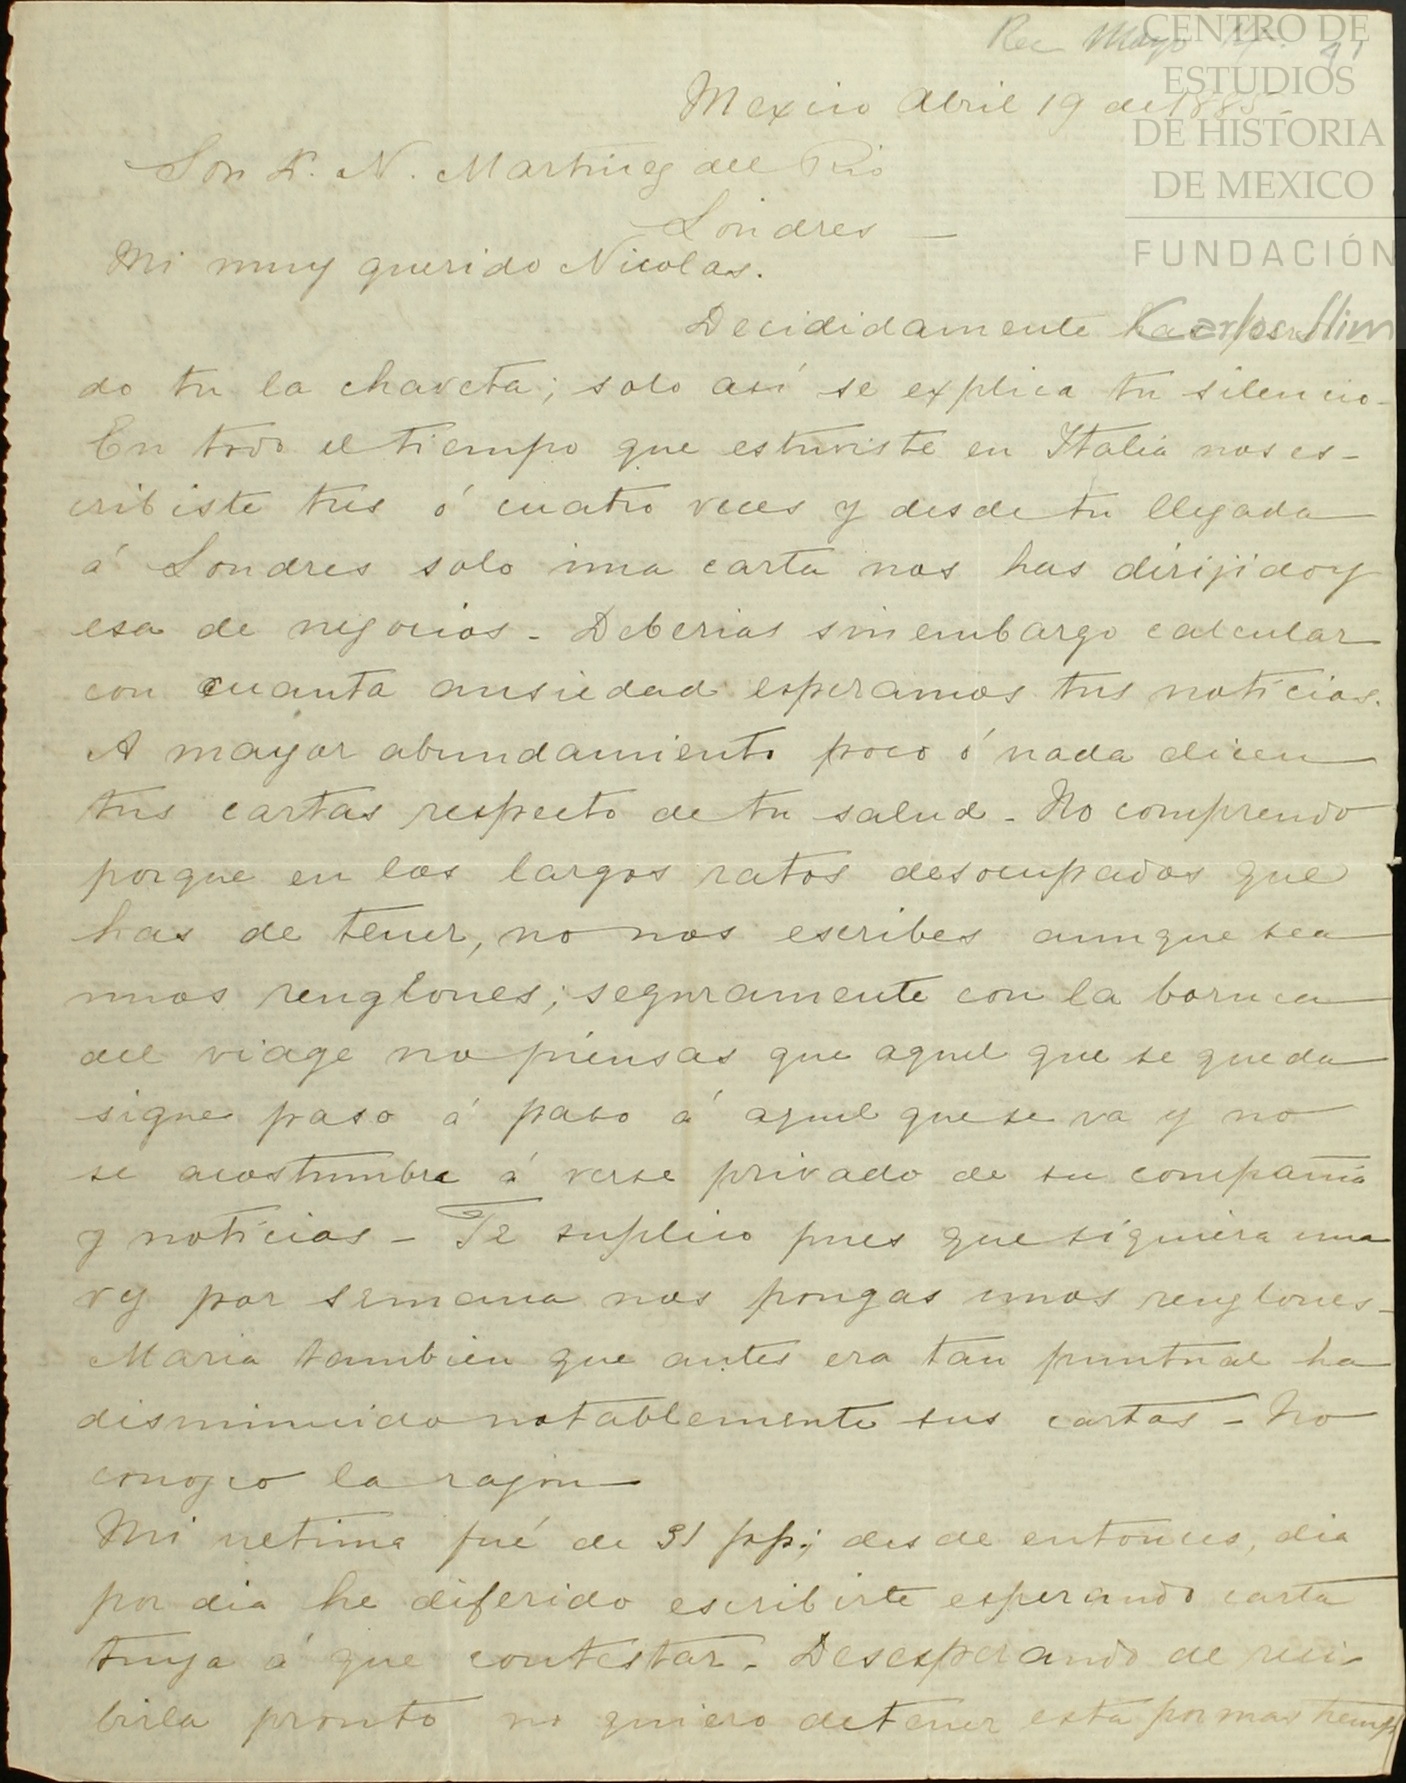 Rec Mayo
CENTRO DE
ESTUDIOS
DE HISTORIA
DE MEXICO
FUNDACIÓN
Carlos Slim
Mexico Abril 19 de 1885
Don N. Martinez del Rio
Londres —
Mi muy querido Nicolas.
Decididamente has perdi
do tu la chaveta; solo así se explica tu silencio -
En todo el tiempo que estuviste en Italia nos es-
cribiste tres ó cuatro veces y desde tu llegada
á Londres solo una carta nos has dirijido y
esa de negocios - Deberias sin embargo calcular
con cuanta ansiedad esperamos tus noticias.
A mayor abundamiento poco ó nada dicen
tus cartas respecto de tu salud - No comprendo
porque en los largos ratos desocupados que
has de tener, no nos escribes aunque sea
unos renglones; seguramente con la boruca
del viage no piensas que aquel que se queda
sigue paso á paso á aquel que se va y no
se acostumbra á verse privado de su compañia
y noticias - Te suplico pues que siquiera una
vez por semana nos pongas unos renglones -
Maria tambien que antes era tan puntual ha
disminuido notablemente sus cartas - No
conozco la razon —
Mi ultima fué de 31 pp; desde entonces, dia
por dia he diferido escribirte esperando carta
tuya á que contestar. Desesperando de reci-
birla pronto no quiero detener esta por mas tiempo